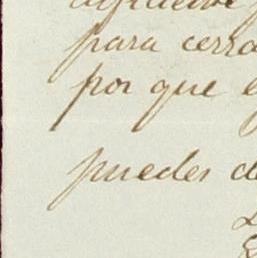 para cerra
por que e
puedes d